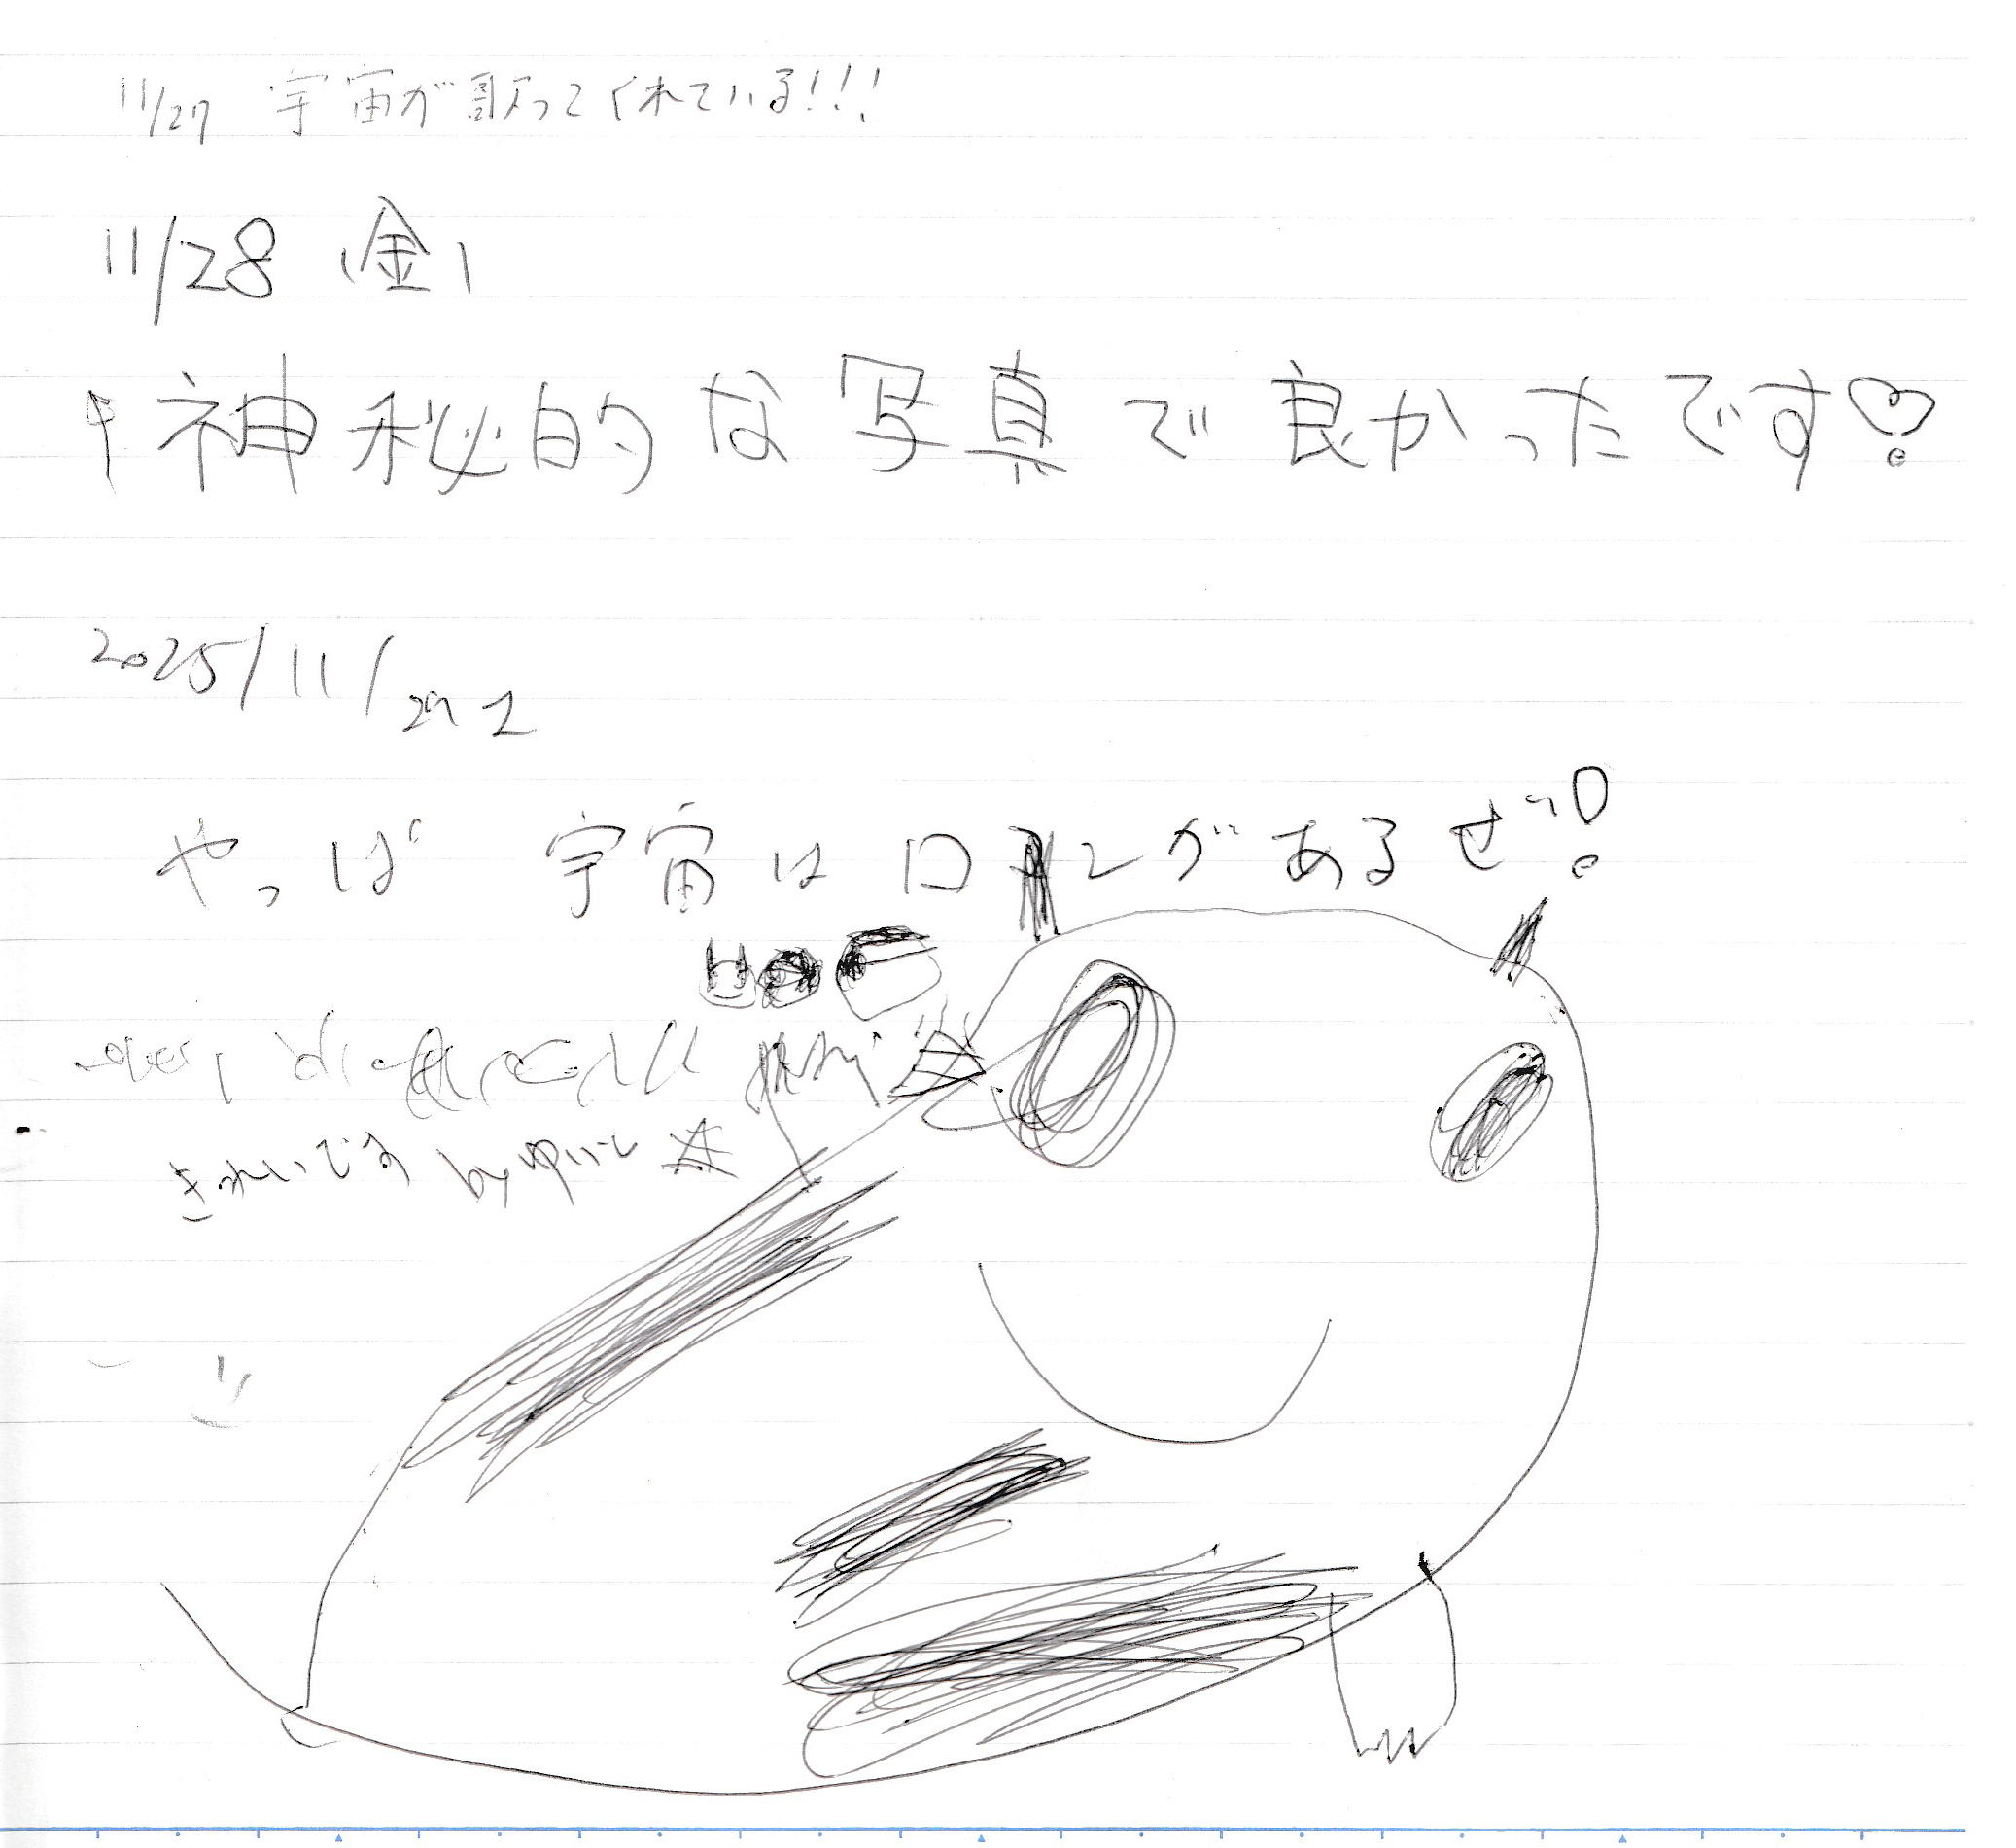 11/27 宇宙が歌ってくれている!!!
11/28 (金)
神秘的な写真で良かったです♡
2025/11/29
やっぱ 宇宙は ロマンがあるぜ!!
きれいです by